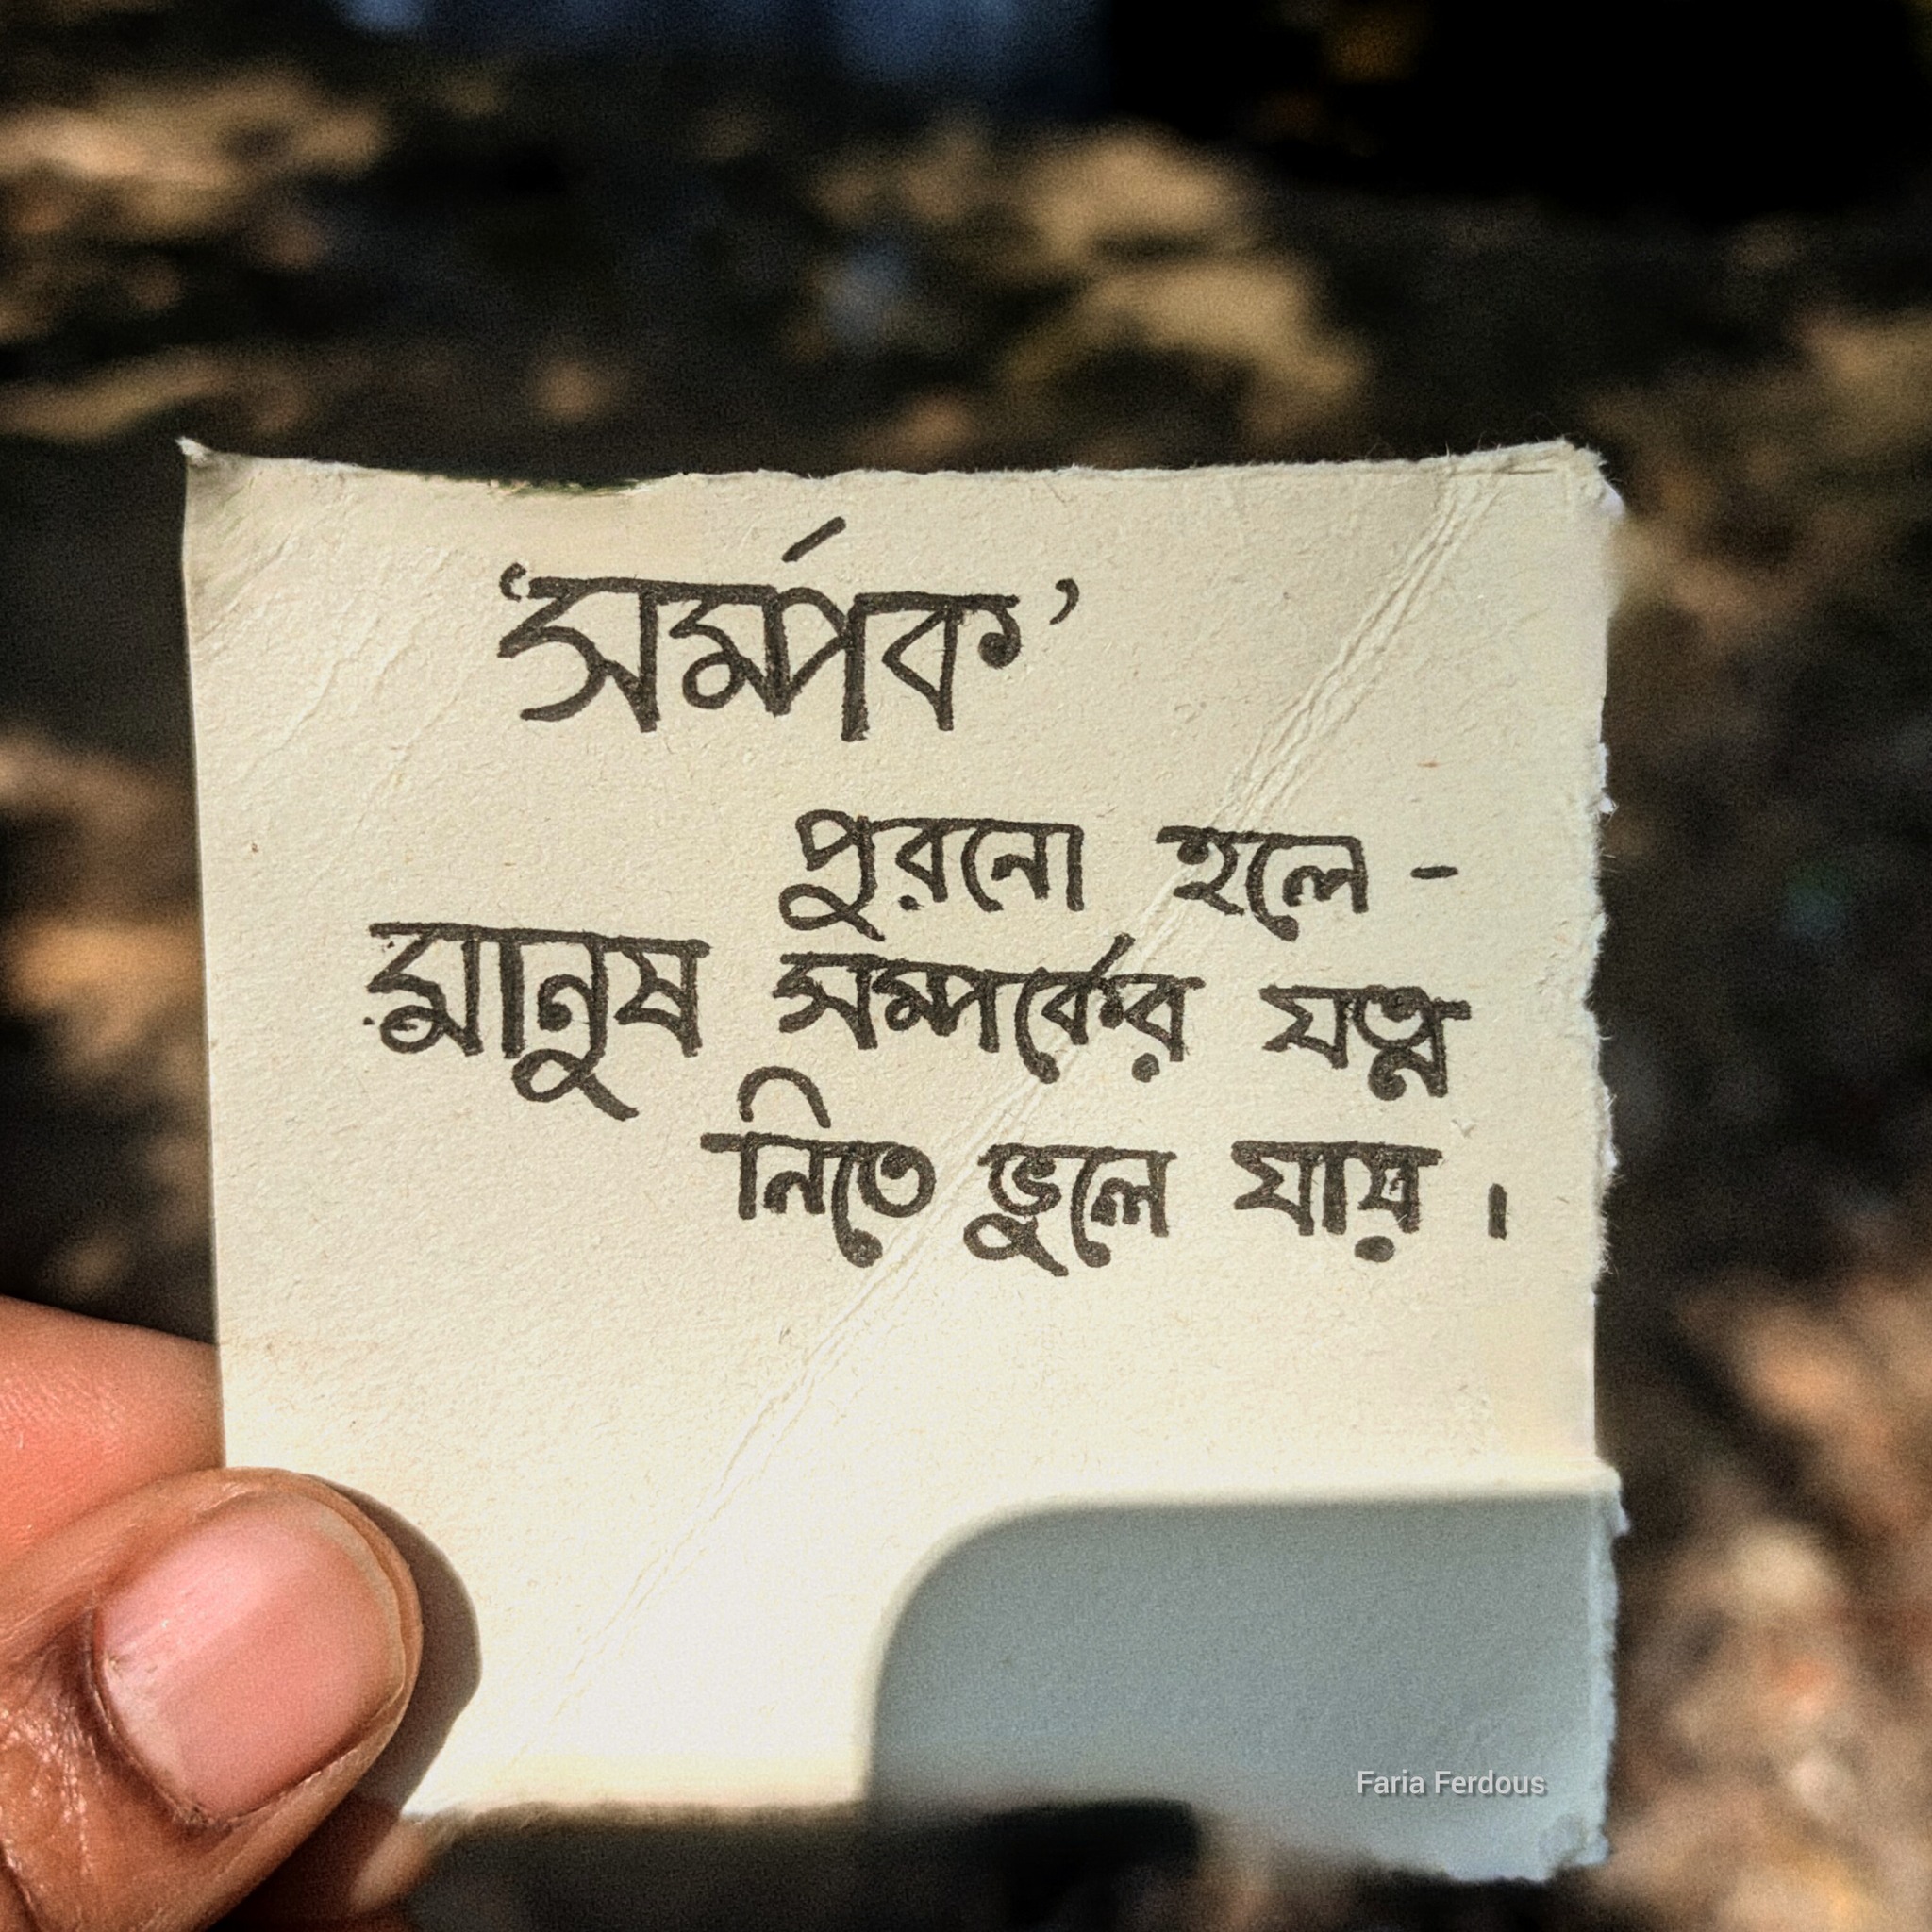 ‘সর্ম্পক’
পুরনো হলে -
মানুষ সম্পর্কের যত্ন
নিতে ভুলে যায় ।
Faria Ferdous